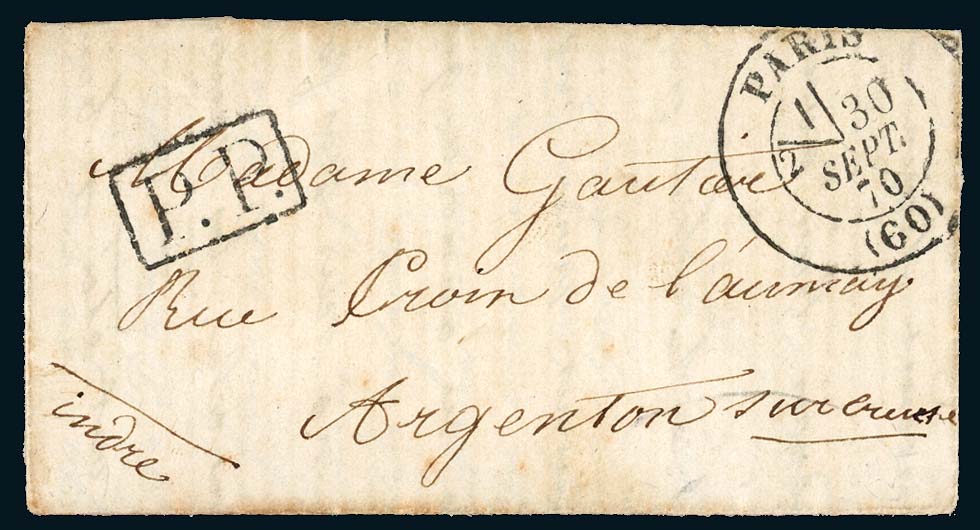 PARIS
2 1/ 30
SEPT.
70
(60)
P.P.
Madame Gautier
Rue Croix de l'aumay
Argenton sur creuse
indre